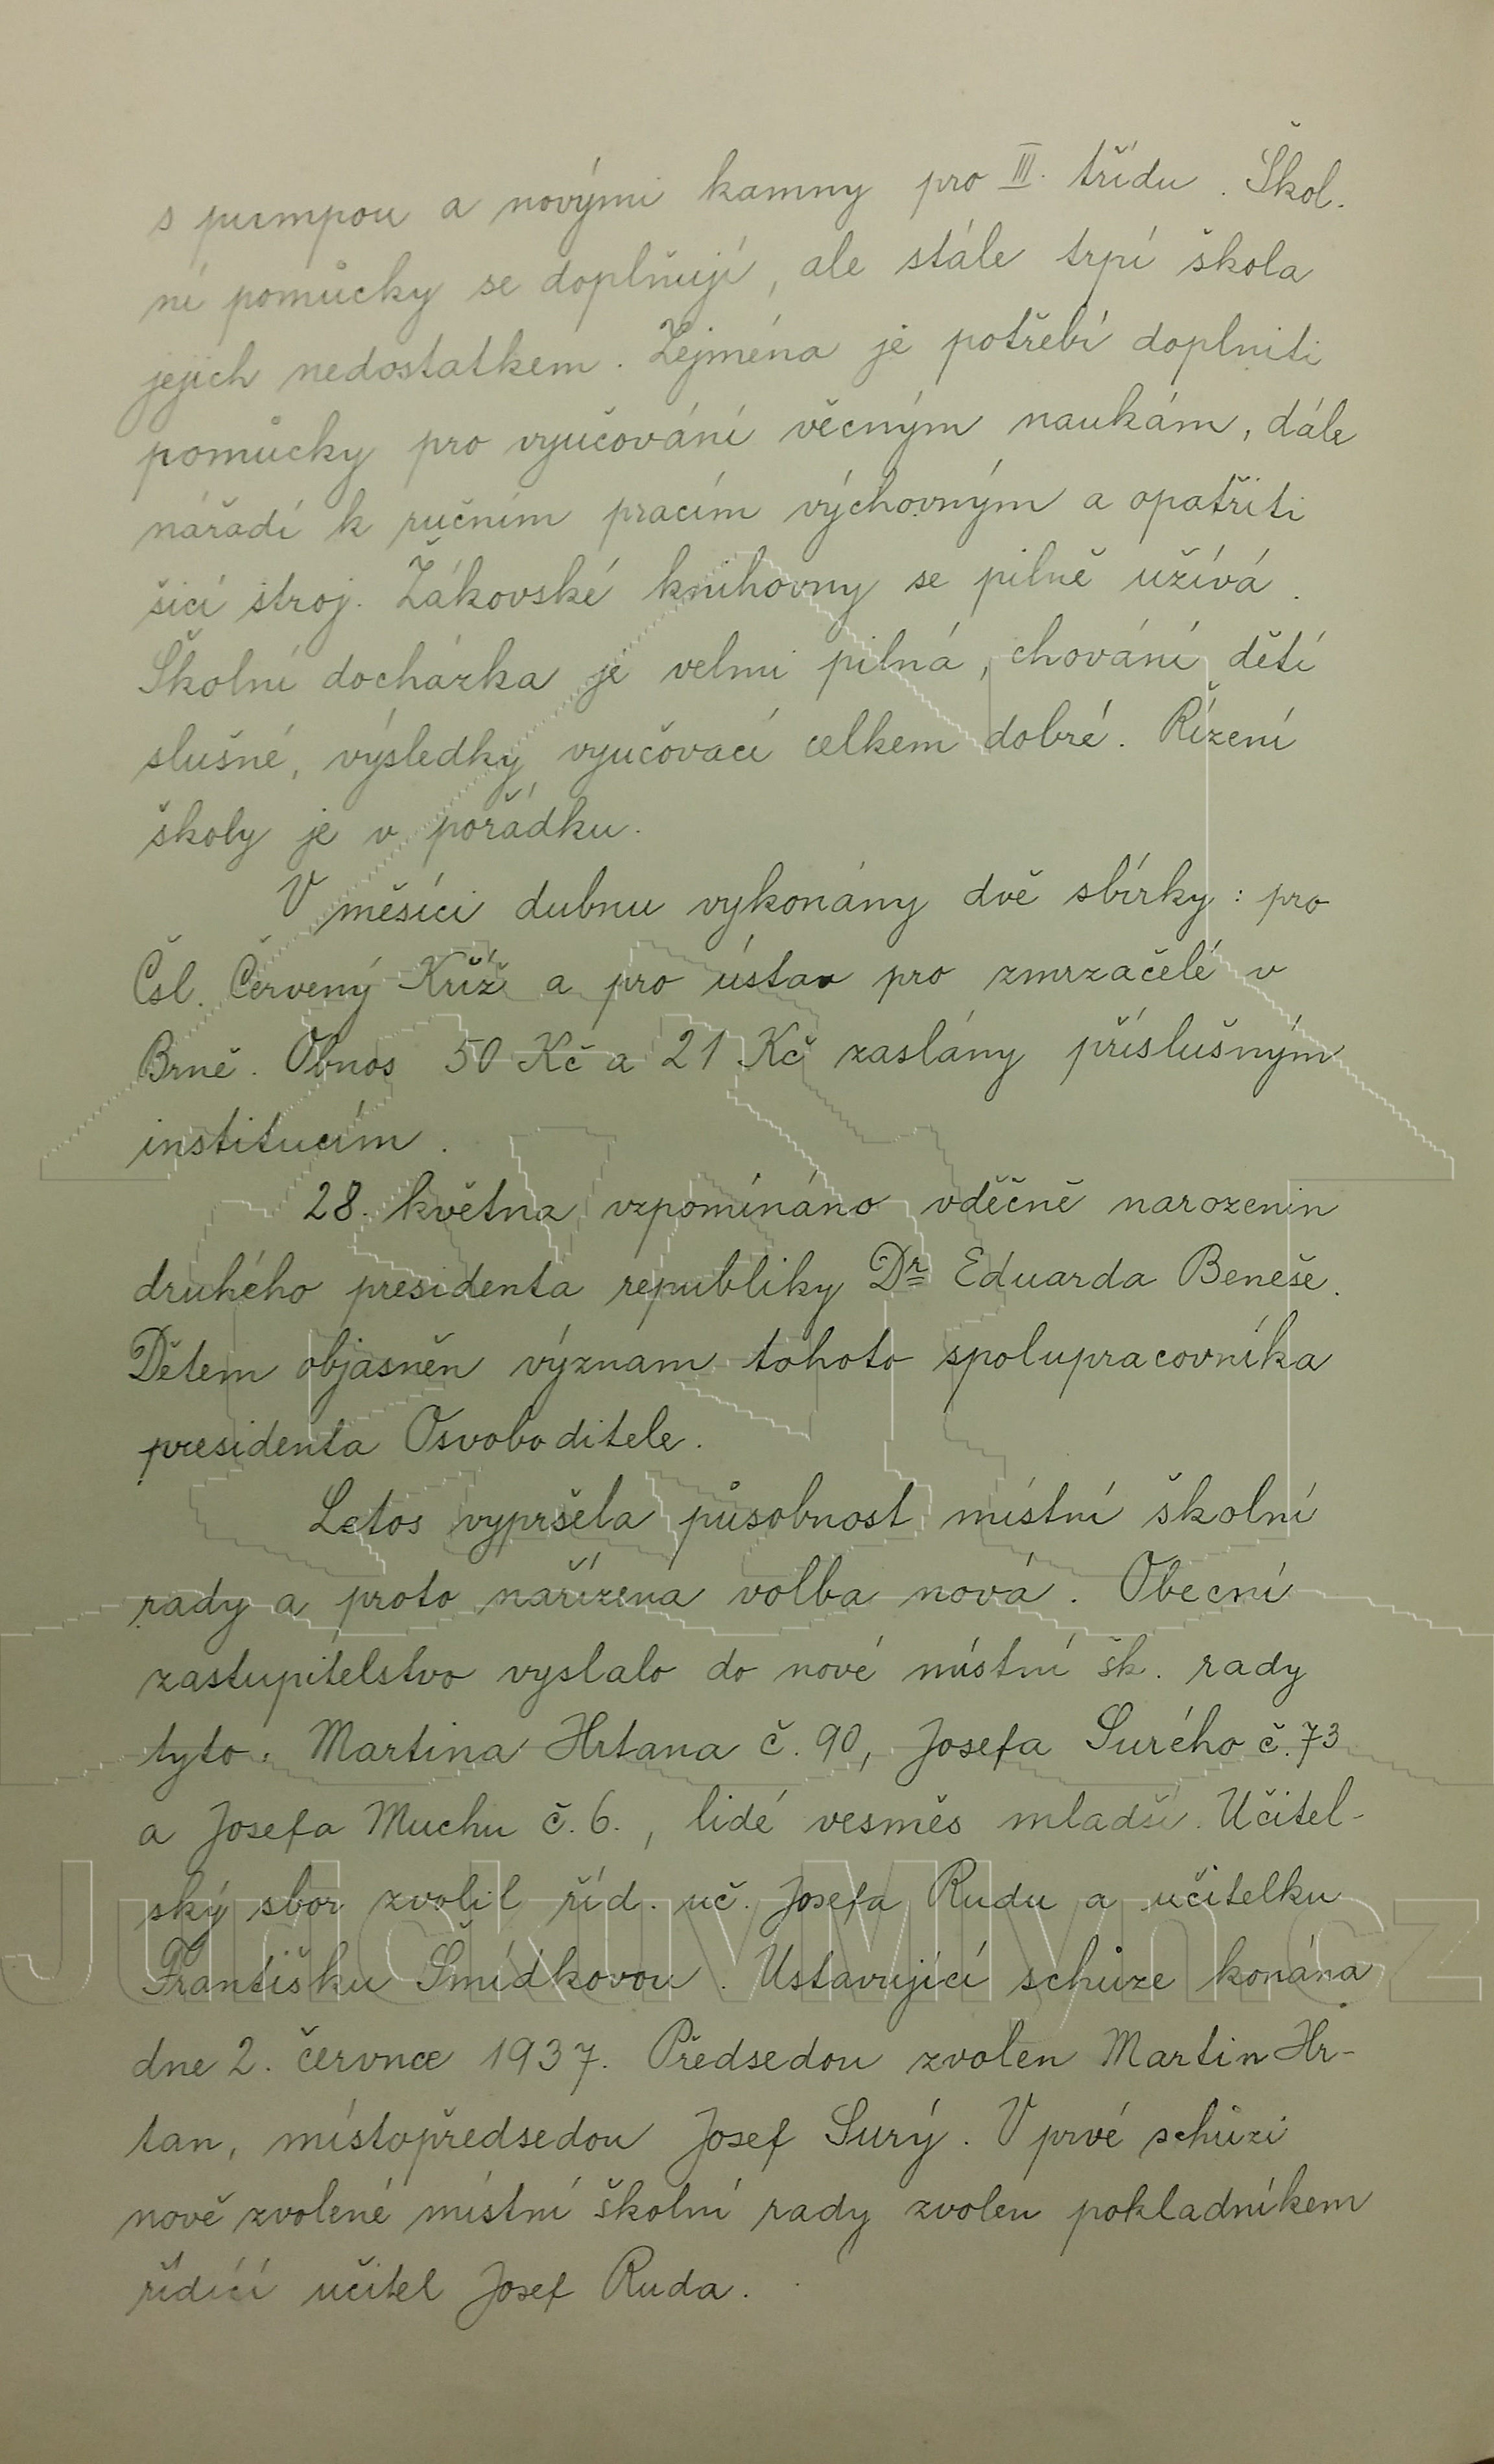 s pumpou a novými kamny pro III. třídu. Škol.
ní pomůcky se doplňují, ale stále trpí škola
jejich nedostatkem. Zejména je potřebí doplniti
pomůcky pro vyučování věcným naukám, dále
nářadí k ručním pracím výchovným a opatřiti
šicí stroj. Žákovské knihovny se pilně užívá.
Školní docházka je velmi pilná, chování dětí
slušné, výsledky vyučovací celkem dobré. Řízení
školy je v pořádku.
V měsíci dubnu vykonány dvě sbírky: pro
Čsl. Červený Kříž a pro ústav pro zmrzačelé v
Brně. Obnos 50 Kč a 21 Kč zaslány příslušným
institucím.
28. května vzpomínáno vděčně narozenin
druhého presidenta republiky Dr Eduarda Beneše.
Dětem objasněn význam tohoto spolupracovníka
presidenta Osvoboditele.
Letos vypršela působnost místní školní
rady a proto nařízena volba nová. Obecní
zastupitelstvo vyslalo do nové místní šk. rady
tyto: Martina Hrtana č. 90, Josefa Surého č. 73
a Josefa Muchu č. 6., lidé vesměs mladší. Učitel-
ský sbor zvolil říd. uč. Josefa Rudu a učitelku
Františku Šmídkovou. Ustavující schůze konána
dne 2. července 1937. Předsedou zvolen Martin Hr-
tan, místopředsedou Josef Surý. V prvé schůzi
nově zvolené místní školní rady zvolen pokladníkem
řídící učitel Josef Ruda.